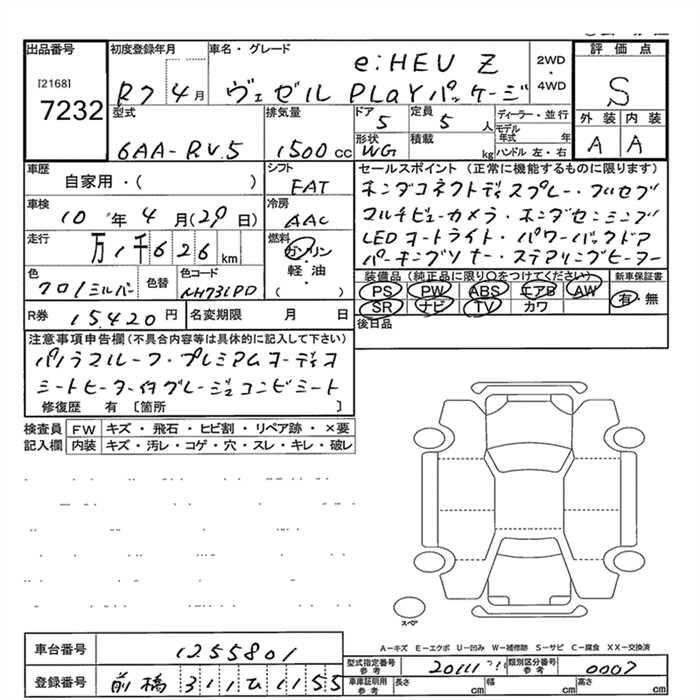 出品番号
[2168]
7232
初度登録年月
R7 4月
車名・グレード
e:HEV Z
ヴェゼル PLaYパッケージ
2WD
・
4WD
評価点
S
外装 内装
A A
型式
6AA-RV5
排気量
1500cc
ドア
5
定員
5人
形状
WG
積載
kg
ディーラー・並行
モデル年式 年
ハンドル 左・右
車歴
自家用・( )
シフト
FAT
車検
10年4月(29日)
冷房
AAC
走行
万1千626km
燃料
ガソリン
・
軽・油
( )
色
クロ/シルバー
色替
色コード
NH731PD
R券
15,420円
名変期限 月 日
セールスポイント(正常に機能するものに限ります)
ホンダコネクトディスプレー・フルセグ
マルチビューカメラ・ホンダセンシング
LEDオートライト・パワーバックドア
パーキングソナー・ステアリングヒーター
装備品(純正品に限り○をつけてください)
PS PW ABS エアB AW
SR ナビ TV カワ
新車保証書
有・無
後日品
注意事項申告欄(不具合内容等は具体的に記入して下さい)
パノラマルーフ・プレミアムオーディオ
シートヒーター付グレージュコンビシート
修復歴 有 〔箇所
検査員記入欄
FW キズ・飛石・ヒビ割・リペア跡・×要
内装 キズ・汚レ・コゲ・穴・スレ・キレ・破レ
スペア
A-キズ E-エクボ U-凹み W-補修跡 S-サビ C-腐食 XX-交換済
車台番号
1255801
登録番号
前橋 311 ひ 1155
型式指定番号
参考
20111
類別区分番号
参考
0007
車庫証明用
参考
長さ cm 幅 cm 高さ cm